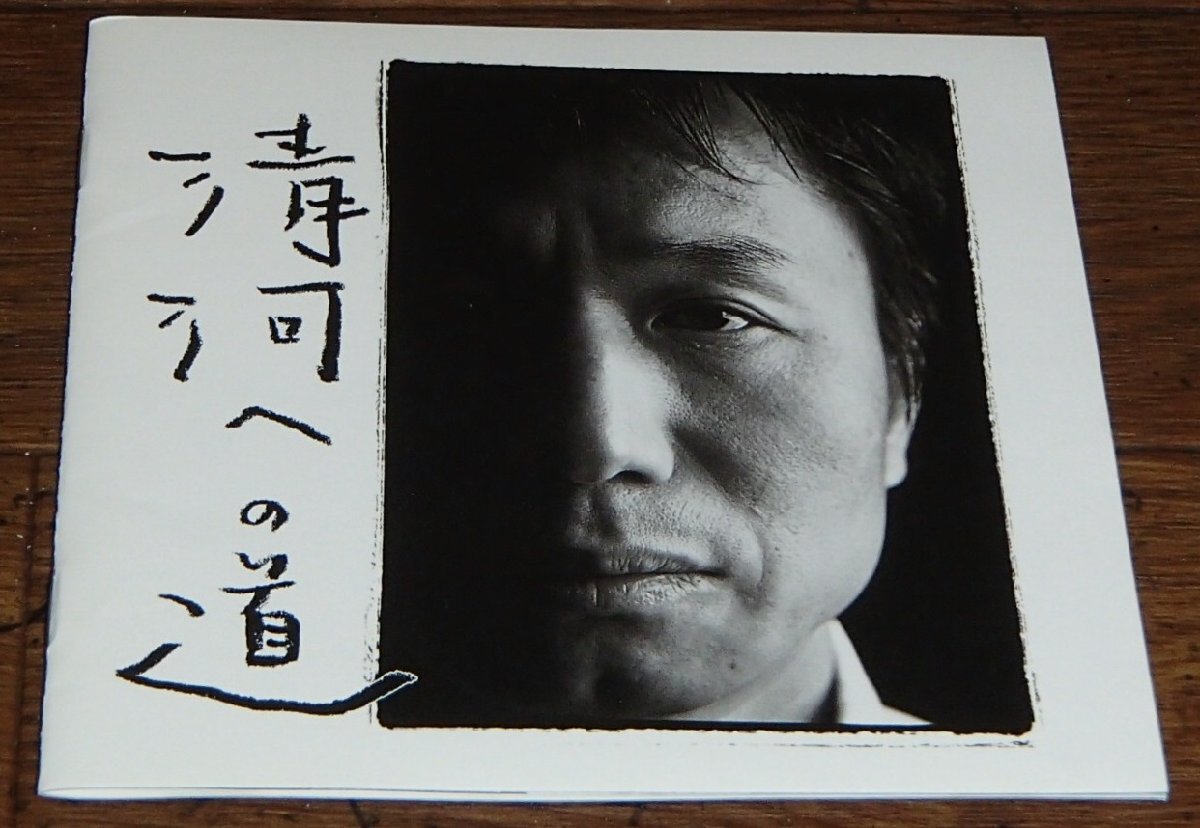 清河への道